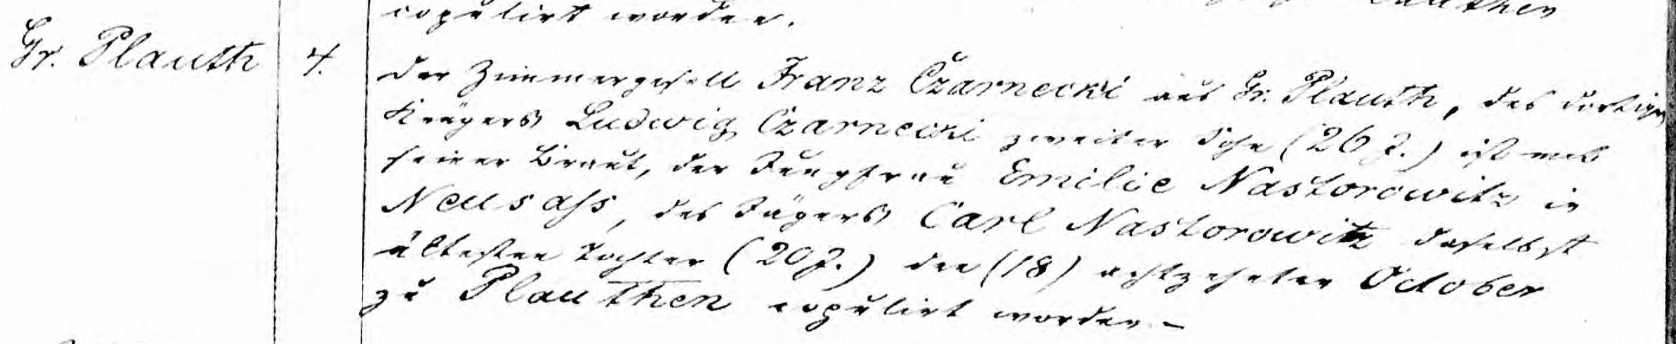 copulirt worden.
Gr. Plauth 4. der Zimmergesell Franz Czarnecki aus Gr. Plauth, des dortigen
Krügers Ludwig Czarnecki zweiter Sohn (26 J.) ist mit
seiner Braut, der Jungfrau Emilie Nastorowitz in
Neusass, des Jägers Carl Nastorowitz daselbst
ältesten Tochter (20 J.) den (18) achtzehnten October
zu Plauthen copulirt worden –